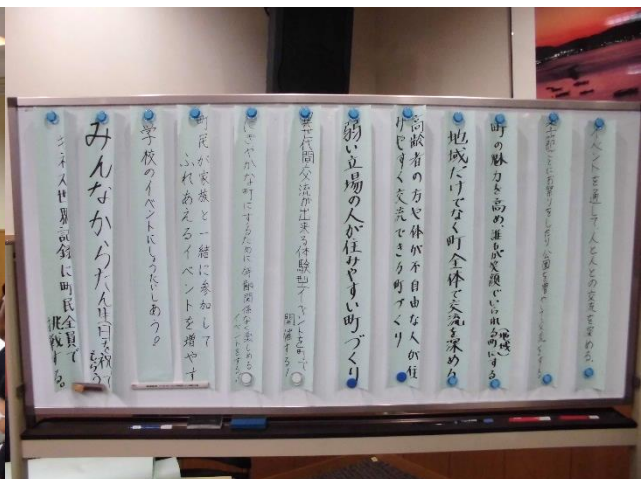 イベントを通して人と人との交流を深める。
町の魅力を高め誰もが笑顔でいられる町にする
(地域)
地域だけでなく町全体で交流を深める
高齢者の方や体が不自由な人が住
りやすく交流できる町づくり
弱い立場の人が住みやすい町づくり
異世代間交流が出来る体験型イベントを町で
開催する!
にぎやかな町にするために年齢関係なく楽しめる
イベントをする!
町民が家族と一緒に参加して
ふれあえるイベントを増やす
学校のイベントにしょうたいしあう?
みんなからたん生日を祝って
もらう
ギネス世界記録に町民全員で
挑戦する。